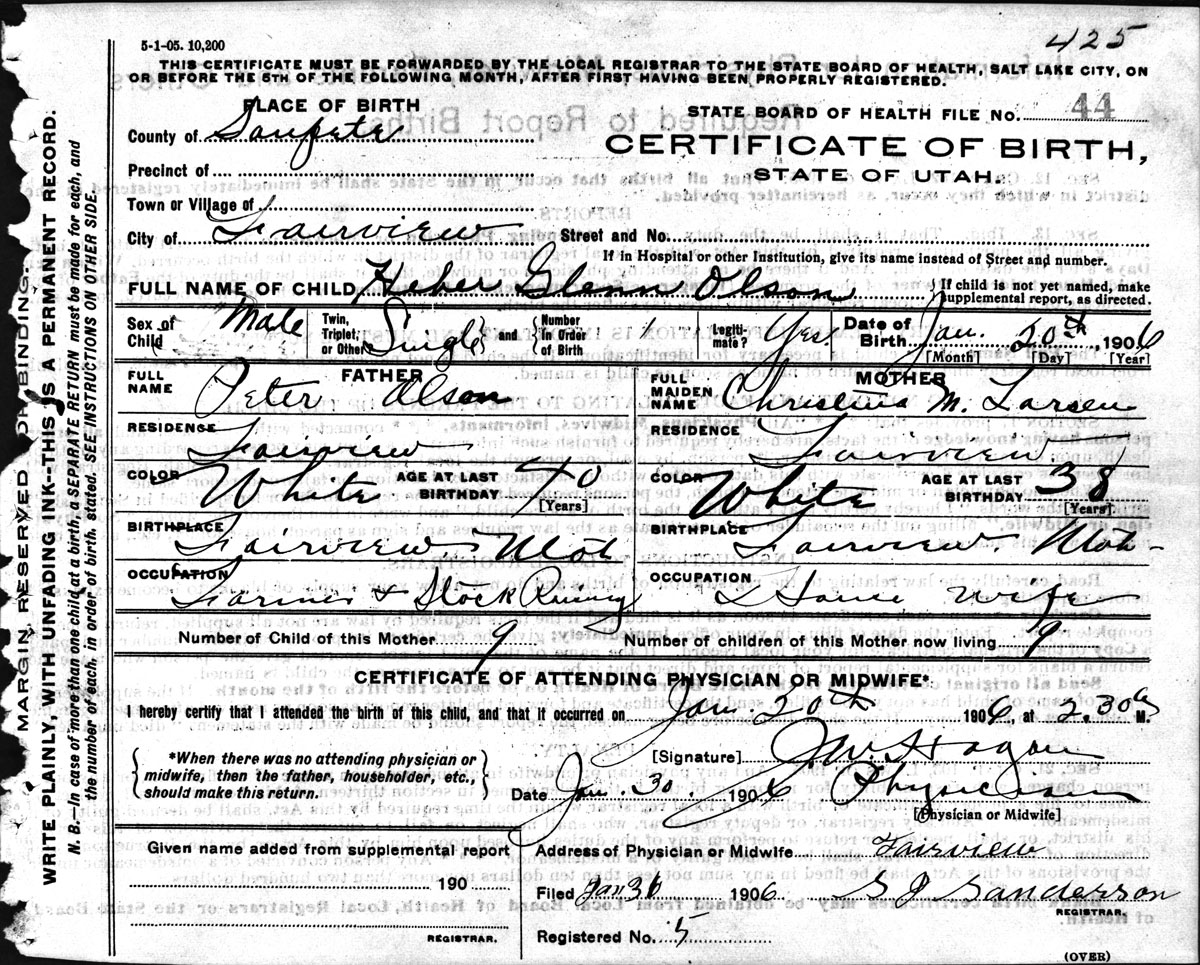 425
5-1-05. 10,200
THIS CERTIFICATE MUST BE FORWARDED BY THE LOCAL REGISTRAR TO THE STATE BOARD OF HEALTH, SALT LAKE CITY, ON
OR BEFORE THE 5TH OF THE FOLLOWING MONTH, AFTER FIRST HAVING BEEN PROPERLY REGISTERED.
MARGIN RESERVED FOR BINDING.
WRITE PLAINLY, WITH UNFADING INK--THIS IS A PERMANENT RECORD.
N. B.—In case of more than one child at a birth, a SEPARATE RETURN must be made for each, and
the number of each, in order of birth, stated. SEE INSTRUCTIONS ON OTHER SIDE.
PLACE OF BIRTH
County of Sanpete
Precinct of
Town or Village of
City of Fairview
STATE BOARD OF HEALTH FILE No. 44
CERTIFICATE OF BIRTH,
STATE OF UTAH.
Street and No.
If in Hospital or other Institution, give its name instead of Street and number.
FULL NAME OF CHILD Heber Glenn Olson { If child is not yet named, make
supplemental report, as directed.
Sex of Child Male Twin, Triplet, or Other Single } and { Number in Order of Birth 1 Legiti-mate? Yes Date of Birth Jan. 20th 1906
[Month] [Day] [Year]
FATHER
FULL NAME Peter Olson
RESIDENCE Fairview
COLOR White AGE AT LAST BIRTHDAY 40
[Years]
BIRTHPLACE Fairview Utah
OCCUPATION Farmer & Stock Raising
MOTHER
FULL MAIDEN NAME Christina M. Larsen
RESIDENCE Fairview
COLOR White AGE AT LAST BIRTHDAY 38
[Years]
BIRTHPLACE Fairview. Utah
OCCUPATION House Wife
Number of Child of this Mother 9 Number of children of this Mother now living 9
CERTIFICATE OF ATTENDING PHYSICIAN OR MIDWIFE*
I hereby certify that I attended the birth of this child, and that it occurred on Jan. 20th 1906, at 2.30 M.
{ *When there was no attending physician or
midwife, then the father, householder, etc.,
should make this return. }
[Signature]
Date Jan. 30, 1906 Physician
[Physician or Midwife]
Given name added from supplemental report
190
REGISTRAR.
Address of Physician or Midwife Fairview
Filed Jan 1906 S J Sanderson
REGISTRAR.
Registered No. 5
(OVER)